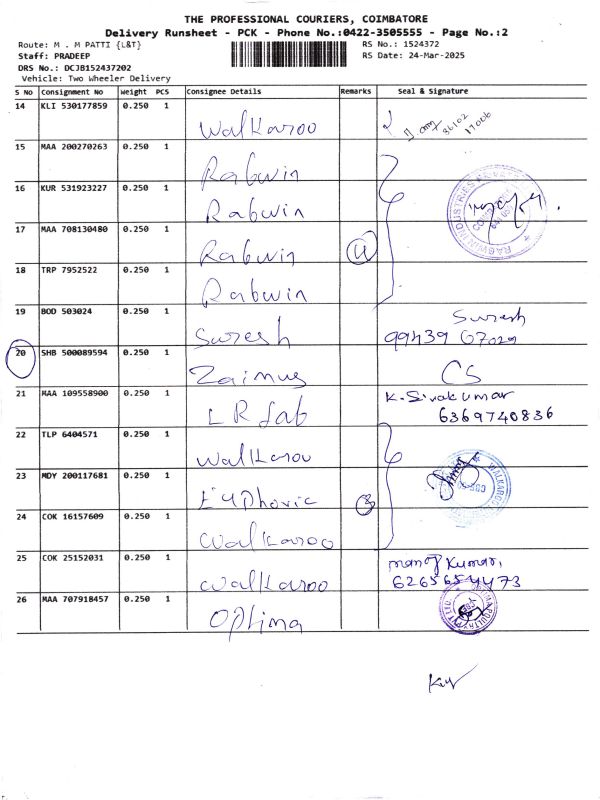 THE PROFESSIONAL COURIERS, COIMBATORE
Delivery Runsheet - PCK - Phone No.:0422-3505555 - Page No.:2
Route: M . M PATTI {L&T}
RS No.: 1524372
Staff: PRADEEP
RS Date: 24-Mar-2025
DRS No.: DCJB152437202
Vehicle: Two Wheeler Delivery
S No Consignment No Weight PCS Consignee Details Remarks Seal & Signature
14 KLI 530177859 0.250 1
Walkaroo
36102
17006
15 MAA 200270263 0.250 1
Rabwin
16 KUR 531923227 0.250 1
Rabwin
17 MAA 708130480 0.250 1
Rabwin 4
18 TRP 7952522 0.250 1
Rabwin
19 BOD 503024 0.250 1
Suresh
Suresh
99439 67029
20 SHB 500089594 0.250 1
Zaimus CS
21 MAA 109558900 0.250 1
LR Lab
K. Sivakumar
6369740836
22 TLP 6404571 0.250 1
Walkaroo
23 MDY 200117681 0.250 1
Euphoric 3
24 COK 16157609 0.250 1
Walkaroo
25 COK 25152031 0.250 1
Walkaroo
manoj Kumar,
6265654473
26 MAA 707918457 0.250 1
Optima